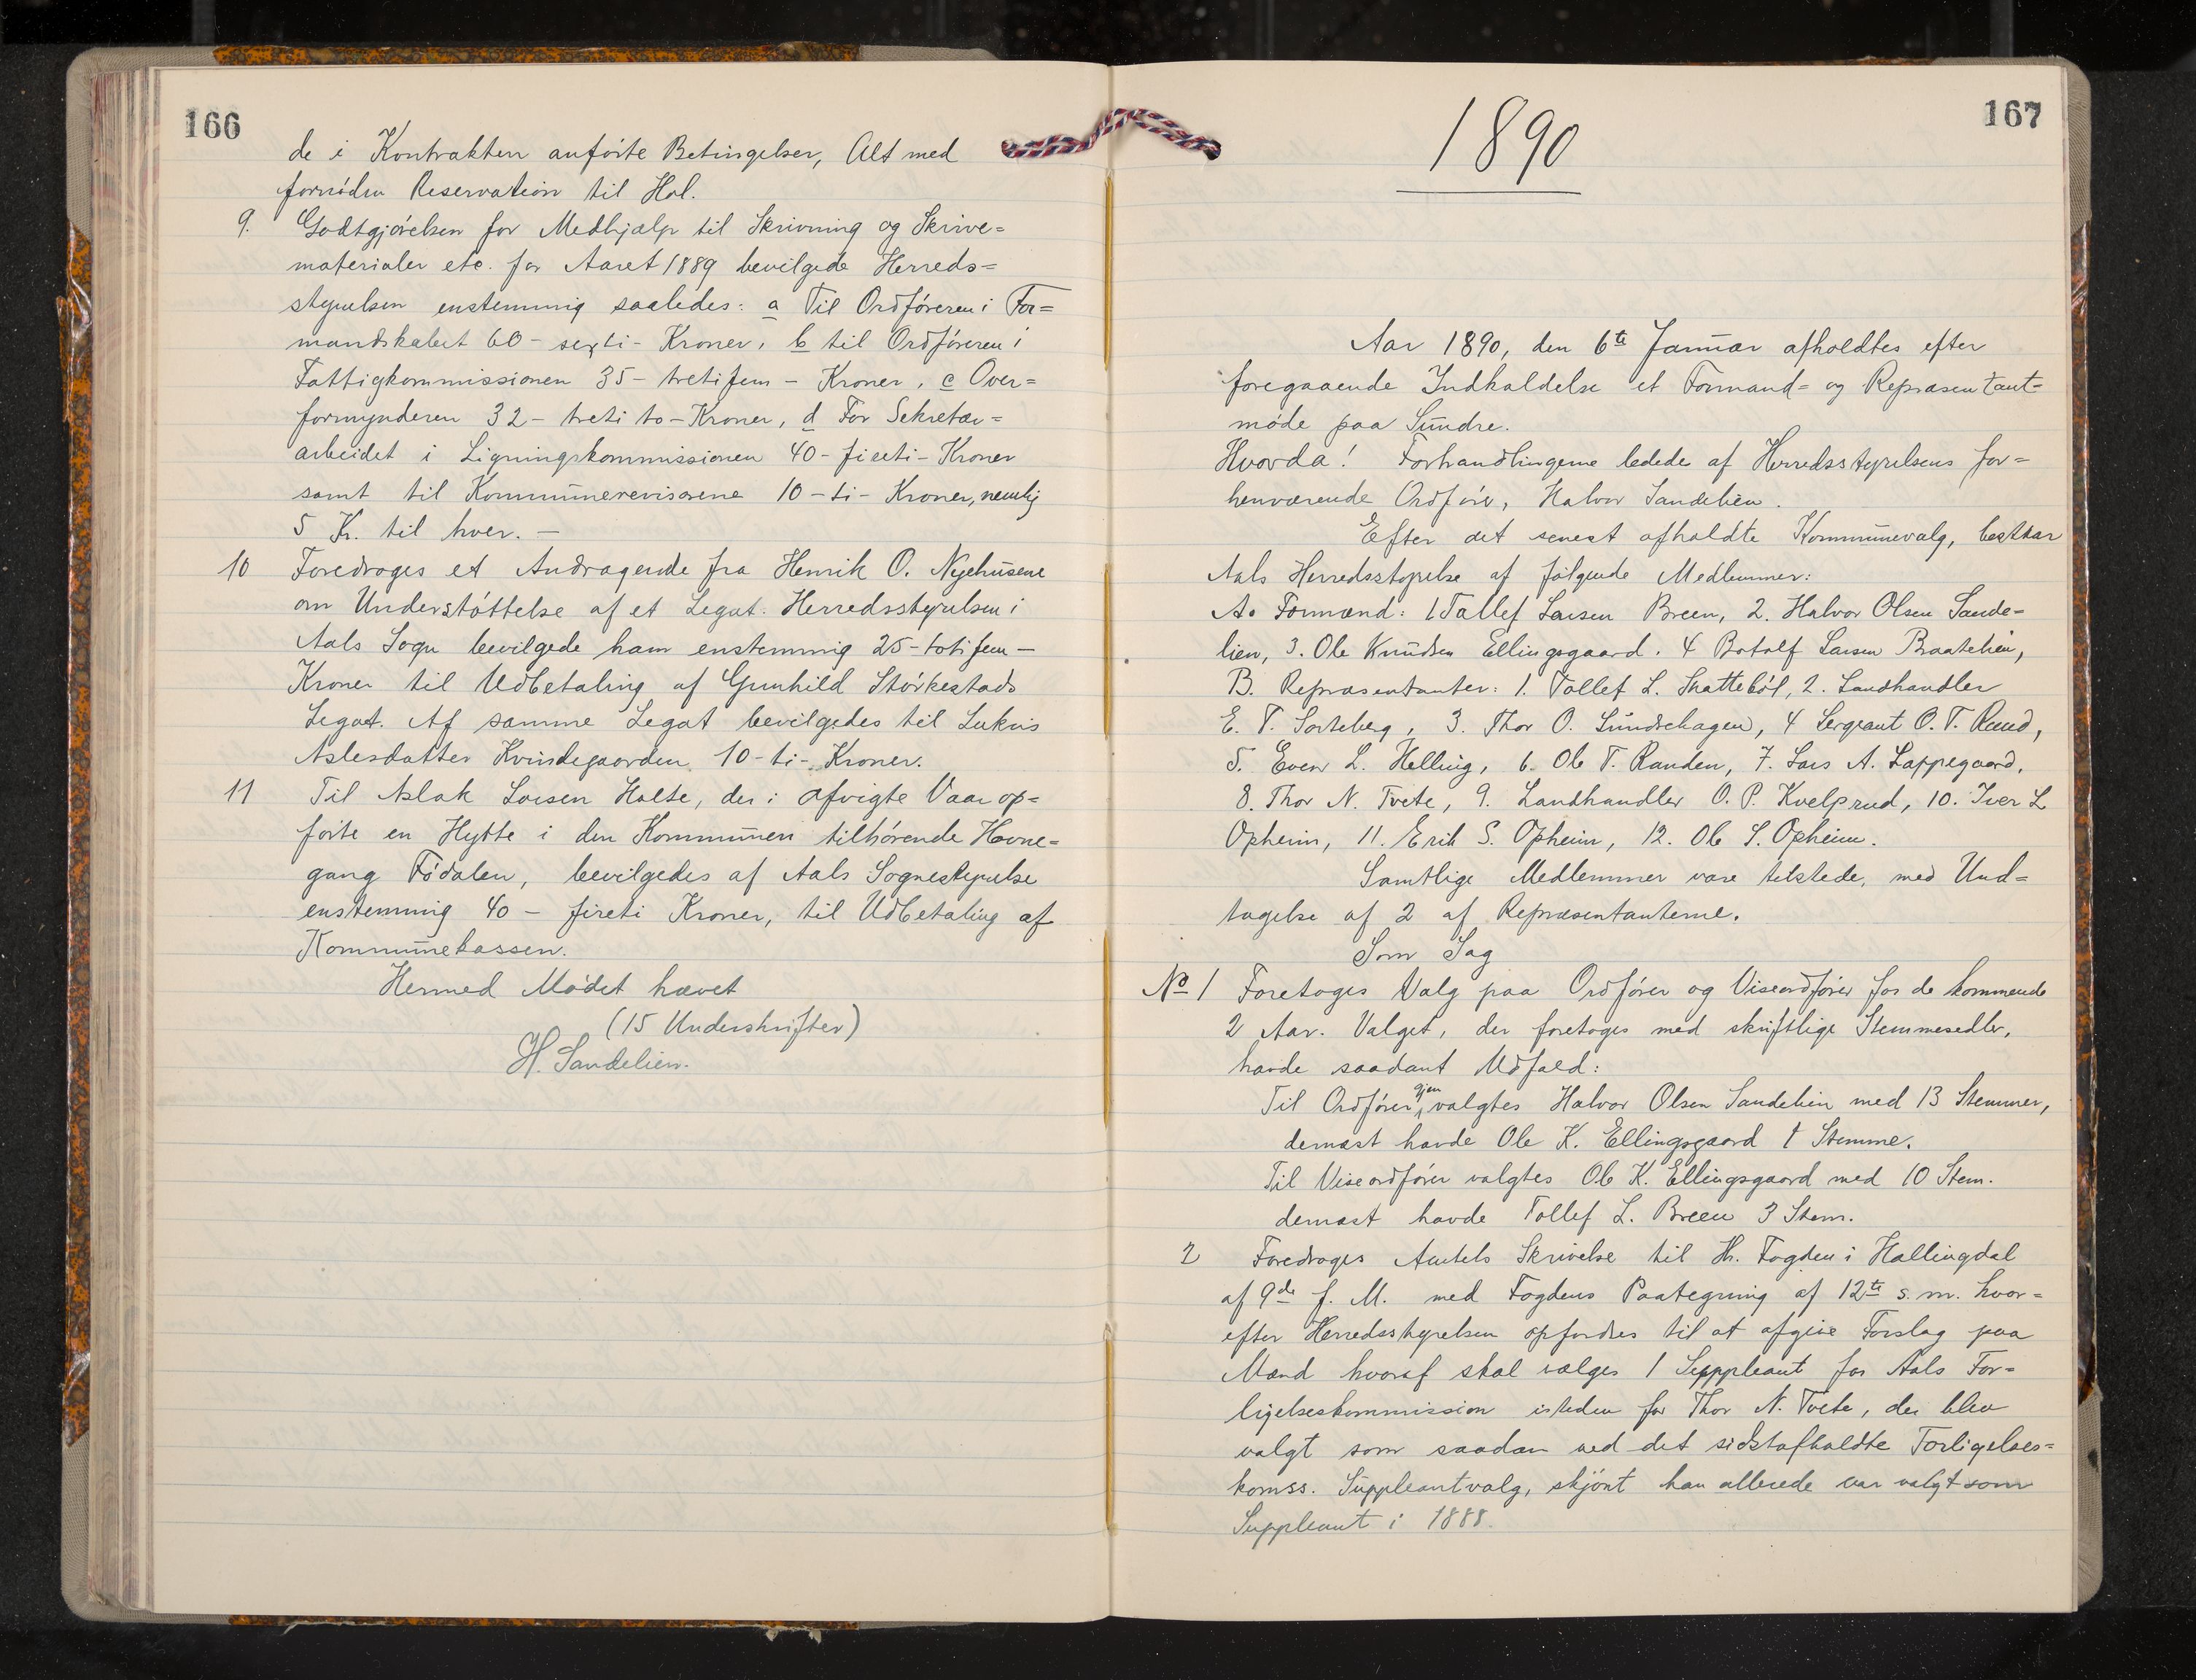 166
de i Kontrakten anførte Betingelser, Alt med
fornøden Reservation til Hol.
9. Godtgjørelsen for Medhjælp til Skrivning og Skrive=
materialer etc. for Aaret 1889 bevilgede Herreds=
styrelsen enstemmig saaledes: a Til Ordføreren i For=
mandskabet 60 - sexti - Kroner, b til Ordføreren i
Fattigkommissionen 35 - tretifem - Kroner, c Over=
formynderen 32 - treti to - Kroner, d For Sekretær=
arbeidet i Ligningskommissionen 40 - fireti - Kroner
samt til Kommunerevisorene 10 - ti - Kroner, nemlig
5 Kr. til hver. -
10 Foredroges et Andragende fra Henrik O. Nyehusene
om Understøttelse af et Legat. Herredsstyrelsen i
Aals Sogn bevilgede ham enstemmig 25 - totifem -
Kroner til Udbetaling af Gunhild Størkestads
Legat. Af samme Legat bevilgedes til Lukris
Aslesdatter Kvindegaarden 10 - ti - Kroner.
11 Til Aslak Larsen Holte, der i afvigte Vaar op=
førte en Hytte i den Kommunen tilhørende Havne=
gang Fødalen, bevilgedes af Aals Sognestyrelse
enstemmig 40 - fireti Kroner, til Udbetaling af
Kommunekassen.
Hermed Mødet hævet
(15 Underskrifter)
H. Sandelien.
167
1890
Aar 1890, den 6te Januar afholdtes efter
foregaaende Indkaldelse et Formand= og Repræsentant=
møde paa Sundre.
Hvorda! Forhandlingerne lededes af Herredsstyrelsens for=
henværende Ordfører, Halvor Sandelien.
Efter det senest afholdte Kommunevalg, bestaar
Aals Herredsstyrelse af følgende Medlemmer:
A. Formænd: 1 Tollef Larsen Breen, 2. Halvor Olsen Sande=
lien, 3. Ole Knudsen Ellingsgaard. 4 Botolf Larsen Braatelien,
B. Repræsentanter: 1. Tollef L. Skattebøl, 2. Landhandler
E. T. Sorteberg, 3. Thor O. Sundrehagen, 4 Sergeant O. T. Rund,
5. Even L. Helling, 6. Ole T. Randen, 7. Lars A. Lappegaard,
8. Thor N. Tvete, 9. Landhandler O. P. Kvelprud, 10. Iver L
Opheim, 11. Erik S. Opheim, 12. Ole S. Opheim.
Samtlige Medlemmer vare tilstede, med Und=
tagelse af 2 af Repræsentanterne.
Som Sag
No 1 Foretoges Valg paa Ordfører og Viseordfører for de kommende
2 Aar. Valget, der foretoges med skriftlige Stemmesedler,
havde saadant Udfald:
Til Ordfører gjenvalgtes Halvor Olsen Sandelien med 13 Stemmer,
dernæst havde Ole K. Ellingsgaard 1 Stemme.
Til Viseordfører valgtes Ole K. Ellingsgaard med 10 Stem.
dernæst havde Tollef L. Breen 3 Stem.
2 Foredroges Amtets Skrivelse til Hr. Fogden i Hallingdal
af 9de f. M. med Fogdens Paategning af 12te s. m. hvor=
efter Herredsstyrelsen opfordres til at afgive Forslag paa
Mænd hvoraf skal vælges 1 Suppleant for Aals For=
ligelseskommission isteden for Thor N. Tvete, der blev
valgt som saadan ved det sidstafholdte Forligelses=
komss. Suppleantvalg, skjønt han allerede var valgt som
Suppleant i 1888.